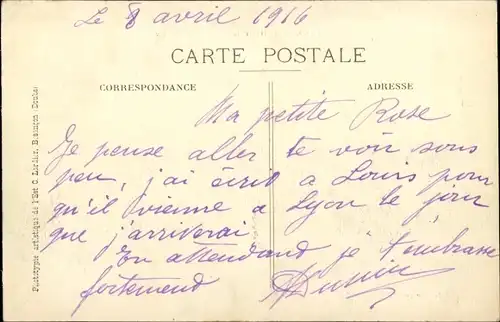 Le 8 avril 1916
CARTE POSTALE
CORRESPONDANCE
ADRESSE
Ma petite Rose
Je pense aller te voir sous
peu, j'ai écrit a Louis pour
qu'il vienne a Lyon le jour
que j'arriverai
En attendand je t'embrasse
fortement
Phototypie artistique de l'Est C. Lardier, Besançon (Doubs)